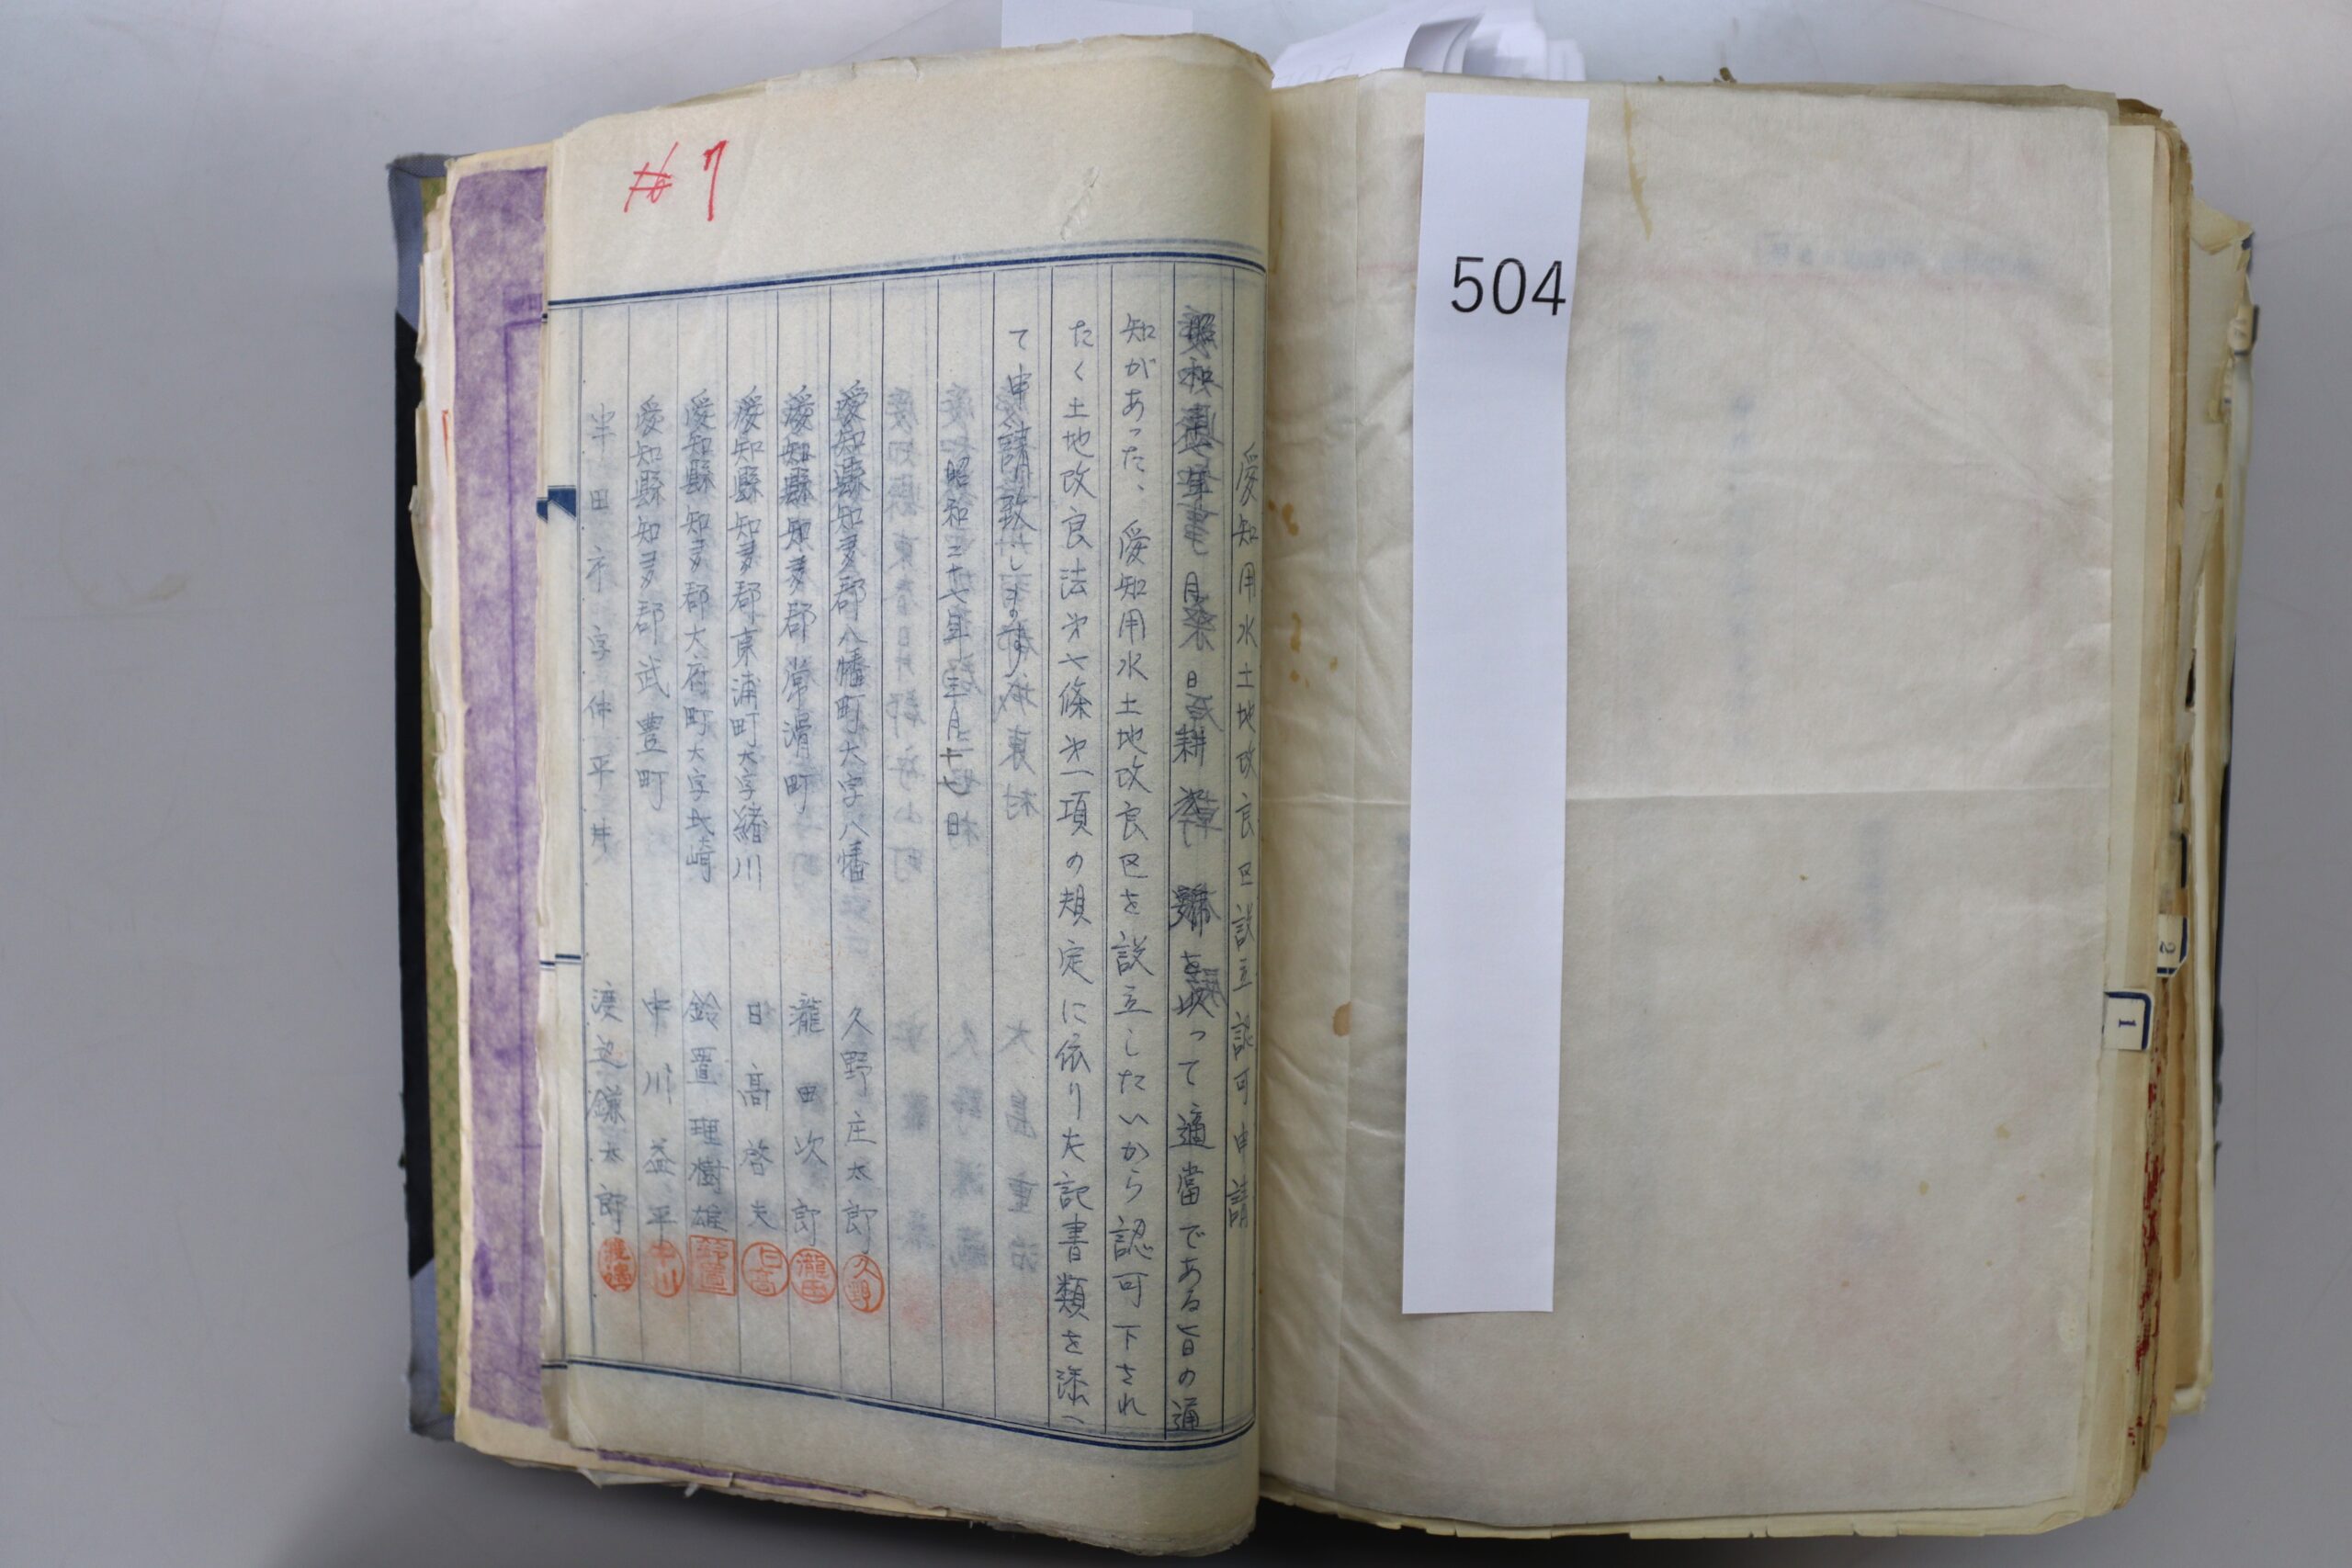 #7
504
愛知用水土地改良区設立認可申請
昭和 年 月 日 耕 第 號を以って適當である旨の通
知があった、愛知用水土地改良区を設立したいから認可下され
たく土地改良法第七條第一項の規定に依り左記書類を添へ
て申請致します
昭和二十七年 月十七日
愛知縣知多郡八幡町大字八幡 久野庄太郎 久野
愛知縣知多郡常滑町 瀧田次郎 瀧田
愛知縣知多郡東浦町大字緒川 日高啓夫 日高
愛知縣知多郡大府町大字 崎 鈴置理樹雄 鈴置
愛知縣知多郡武豊町 中川益平 中川
半田市字 平井 渡辺鎌太郎 渡邊
1
2